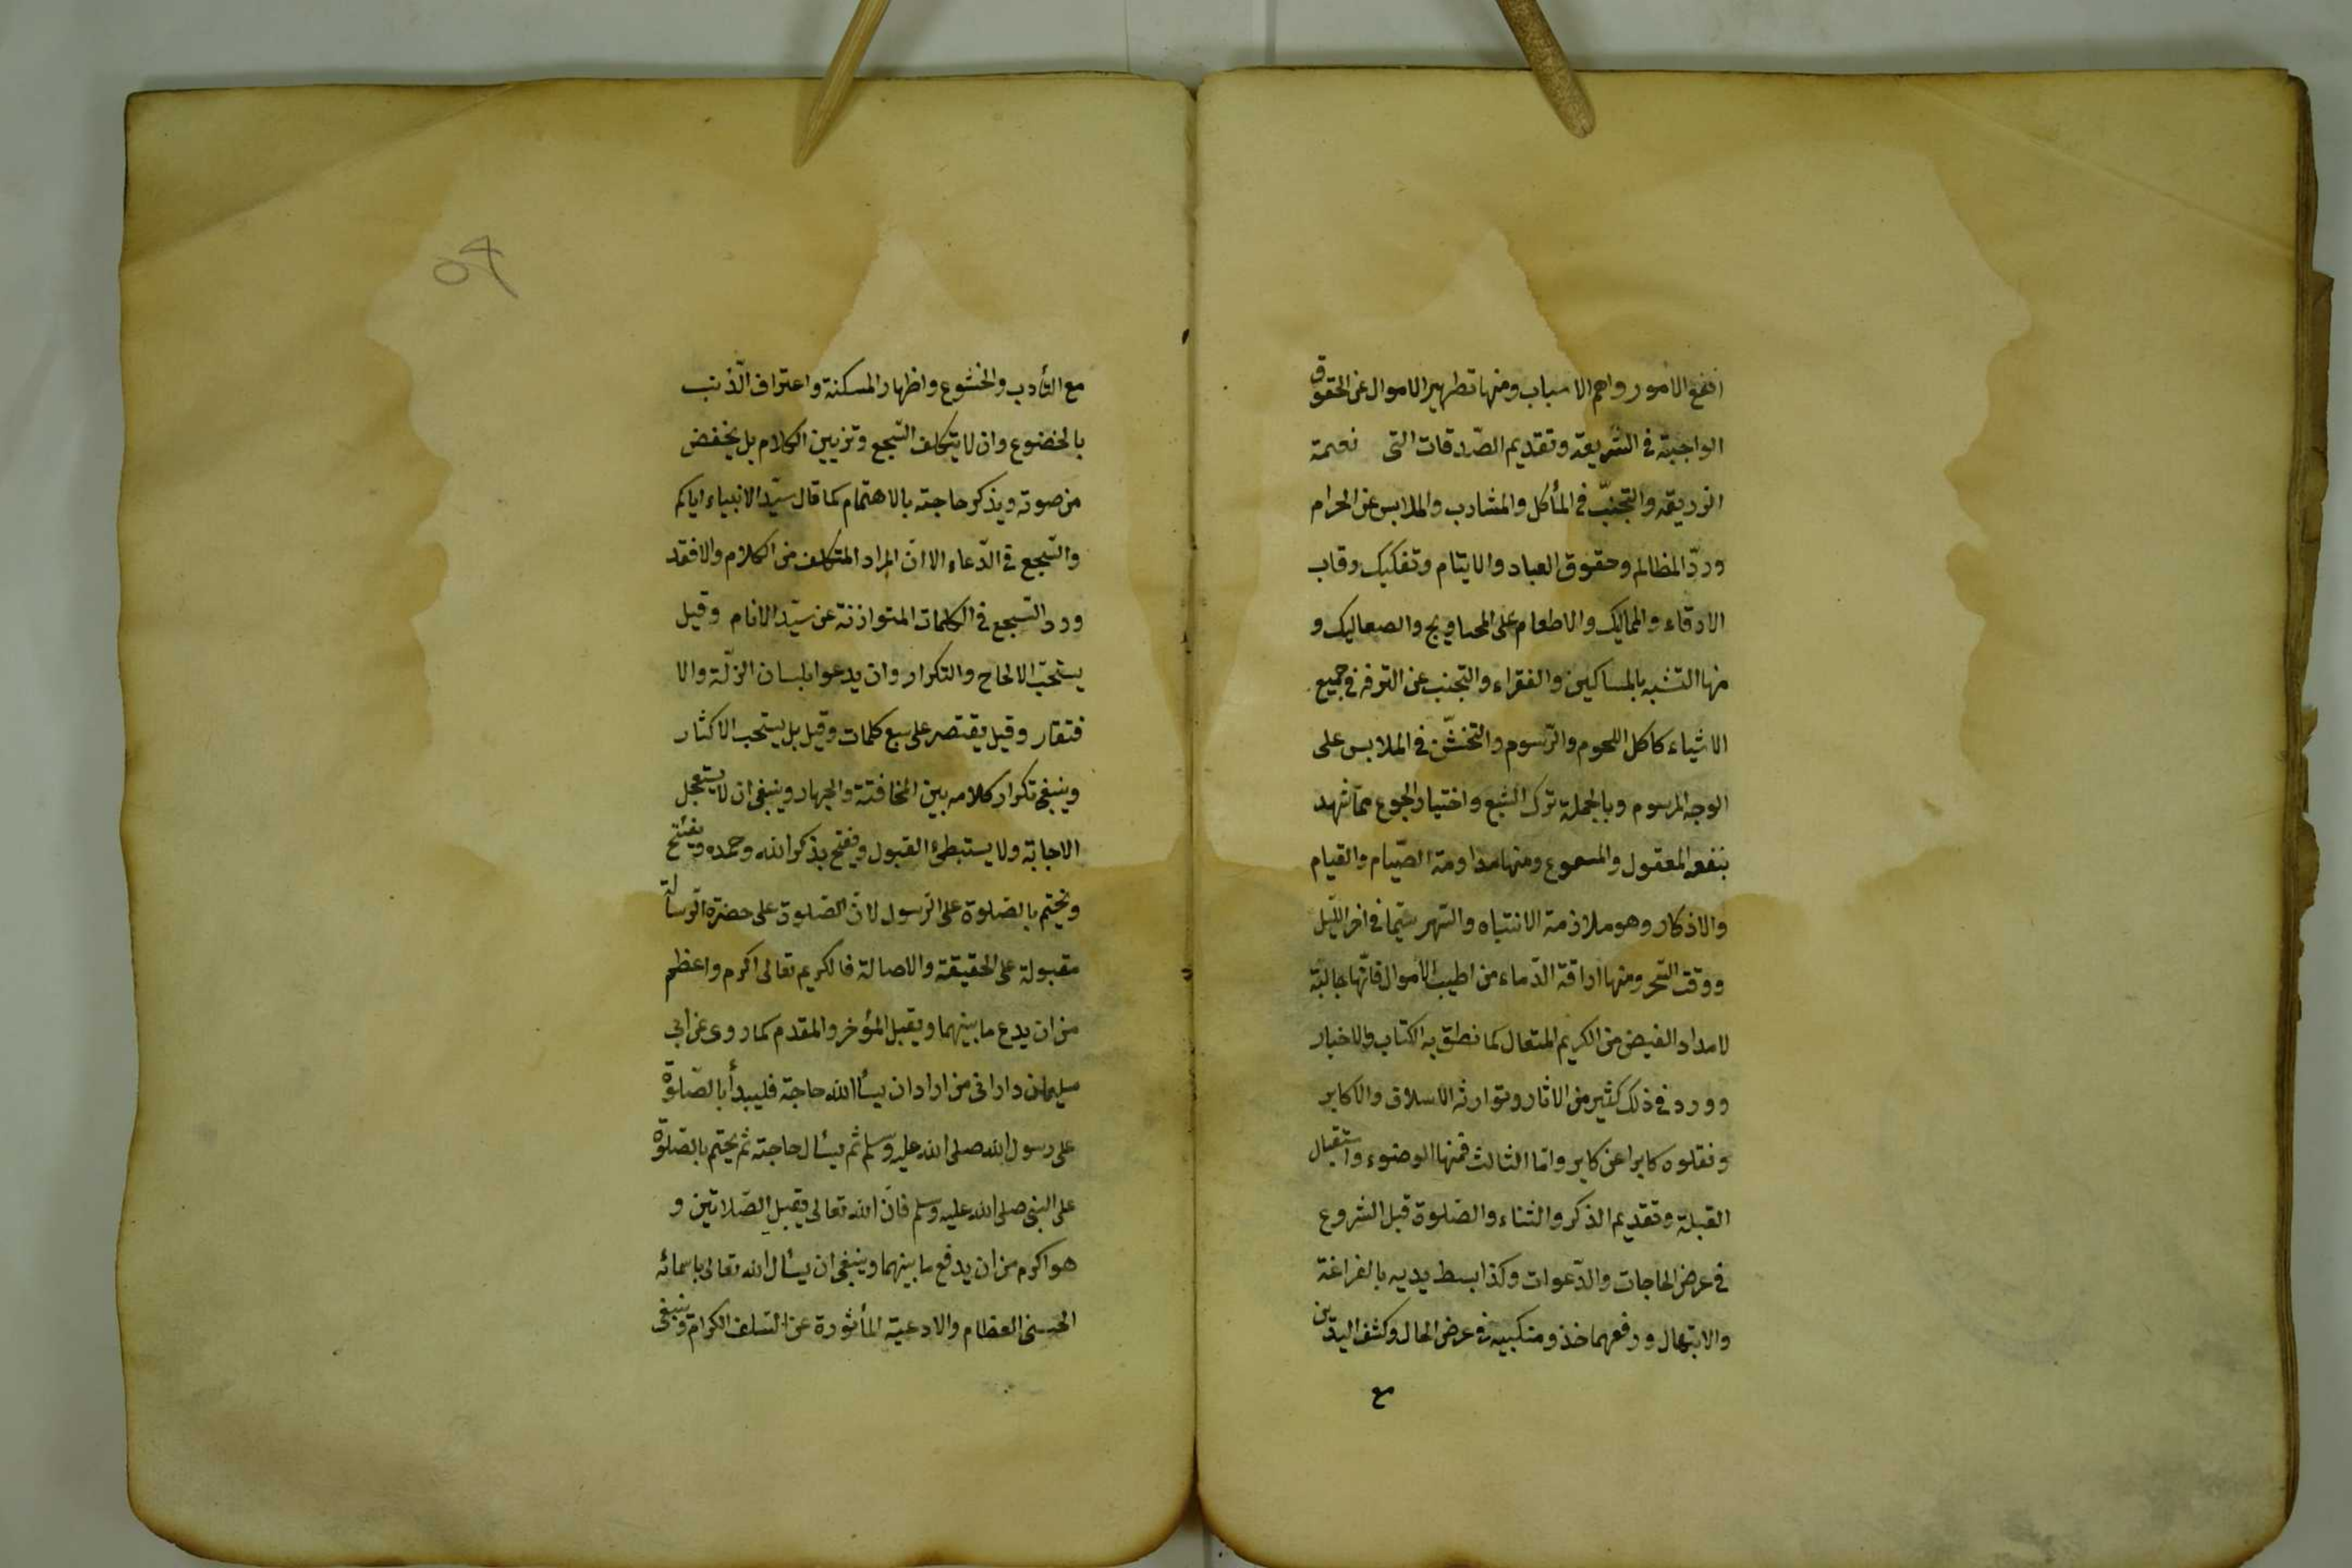 انفع الامور واهم الاسباب ومنها تطهير الاموال عن الحقوق
الواجبة فى الشريعة وتقديم الصّدقات التى نعمة
الذريعة والتجنّب فى المأكل والمشارب والملابس عن الحرام
وردّ المظالم وحقوق العباد والايتام وتفكيك رقاب
الارقاء والمماليك والاطعام على المحاويج والصعاليك و
منها التشبه بالمساكين والفقراء والتجنب عن الترفه فى جميع
الاشياء كاكل اللحوم والدّسوم والتخشّن فى الملابس على
الوجه المرسوم وبالجملة ترك الشبع واختيار الجوع ممّا شهد
بنفعه المعقول والمسموع ومنها مداومة الصّيام والقيام
والاذكار وهو ملازمة الانتباه والسّهر سيّما فى اخر اللّيل
ووقت السّحر ومنها اراقة الدّماء من اطيب الاموال فانّها جالبة
لامداد الفيض من الكريم المتعال كما نطق به الكتاب والاخبار
وورد فى ذلك كثير من الاثار وتوارثه الاسلاف والاكابر
ونقلوه كابرا عن كابر وامّا الثالث فمنها الوضوء واستقبال
القبلة وتقديم الذكر والثناء والصّلوة قبل الشروع
فى عرض الحاجات والدّعوات وكذا بسط يديه بالضراعة
والابتهال ورفعهما حذو منكبيه فى عرض الحال وكشف اليدين
مع
٥٩
مع التأدب والخشوع واظهار المسكنة واعتراف الذّنب
بالخضوع وان لا يتكلف السّجع وتزيين الكلام بل يخفض
من صوته ويذكر حاجته بالاهتمام كما قال سيّد الانبياء اياكم
والسّجع فى الدّعاء الا انّ المراد المتكلف من الكلام والا فقد
ورد السّجع فى الكلمات المتوازنة عن سيّد الانام وقيل
يستحبّ الالحاح والتكرار وان يدعوا بلسان الزلّة والا
فتقار وقيل يقتصر على سبع كلمات وقيل بل يستحب الاكثار
وينبغى تكرار كلامه بين المخافتة والجهار وينبغى ان لا يستعجل
الاجابة ولا يستبطئ القبول ويفتح بذكر الله وحمده ويفتتح
ويختم بالصّلوة على الرّسول لانّ الصّلوة على حضرة الرّسالة
مقبولة على الحقيقة والاصالة فالكريم تعالى اكرم واعظم
من ان يدع ما بينهما ويقبل المؤخر والمقدم كما روى عن ابى
سليمان دارانى من اراد ان يسأل الله حاجة فليبدأ بالصّلوة
على رسول الله صلى الله عليه وسلم ثم يسأل حاجته ثم يختم بالصّلوة
على النبى صلى الله عليه وسلم فانّ الله تعالى يقبل الصّلاتين و
هو اكرم من ان يدفع ما بينهما وينبغى ان يسأل الله تعالى باسمائه
الحسنى العظام والادعية المأثورة عن السّلف الكرام وينبغى